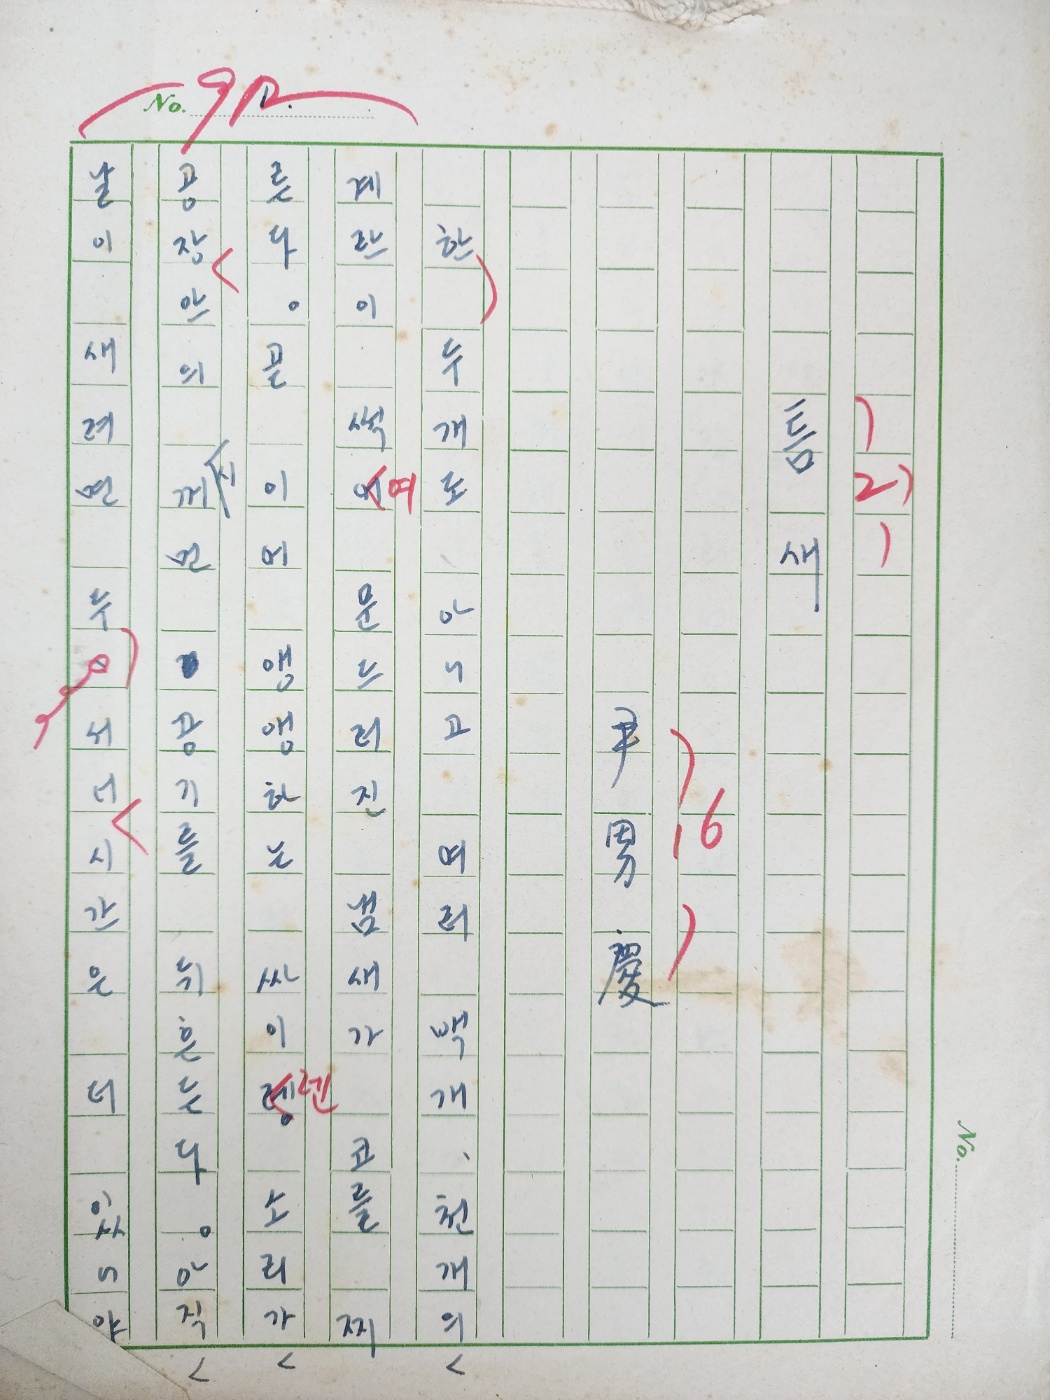 No. 9P.
2)
틈 새
16
尹 男 慶
한 두개도 아니고 여러 백개、천개의
계란이 썩어 문드러진 냄새가 코를 찌
여
른다。골 이어 앵앵하는 싸이렝 소리가
렌
공장안의 께면 공기를 뒤흔든다。아직
시
날이 새려면 두어서너시간은 더 있어야
No.